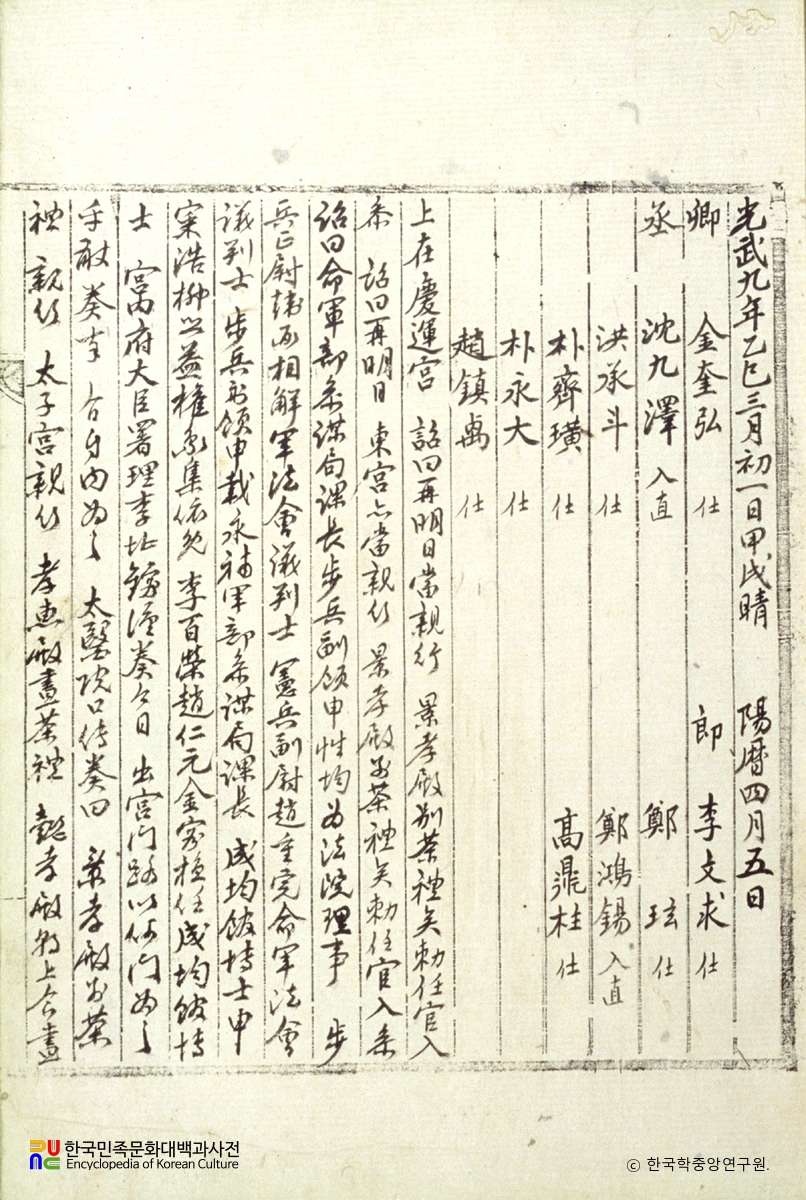 光武九年乙巳三月初一日甲戌晴 陽曆四月五日
卿 金奎弘 仕 郎 李文求 仕
丞 沈九澤 入直 鄭 玹 仕
洪承斗 仕 鄭鴻錫 入直
朴齊璜 仕 高鼎柱 仕
朴永大 仕
趙鎮禹 仕
上在慶運宮 詔曰再明日當親行 景孝殿別茶禮矣勅任官入
叅 詔曰再明日 東宮亦當親行 景孝殿別茶禮矣勅任官入叅
詔曰命軍部叅謀局課長步兵副領申性均爲法院理事 步
兵正尉 相解軍法會議判士 憲兵副尉趙重完命軍法會
議判士 步兵副領申載永補軍部叅謀局課長 成均館博士申
寀浩柳 益 集依免 李百榮趙仁元金 任成均館博
士 宮內府大臣署理李址鎔謹奏今日 出宮門路以何門爲之
乎敢 奏奉 旨 內爲之 太醫院口傳奏曰 景孝殿別茶
禮 親行 太子宮親行 孝惠殿晝茶禮 懿孝殿 上食晝
한국민족문화대백과사전
Encyclopedia of Korean Culture
ⓒ 한국학중앙연구원.